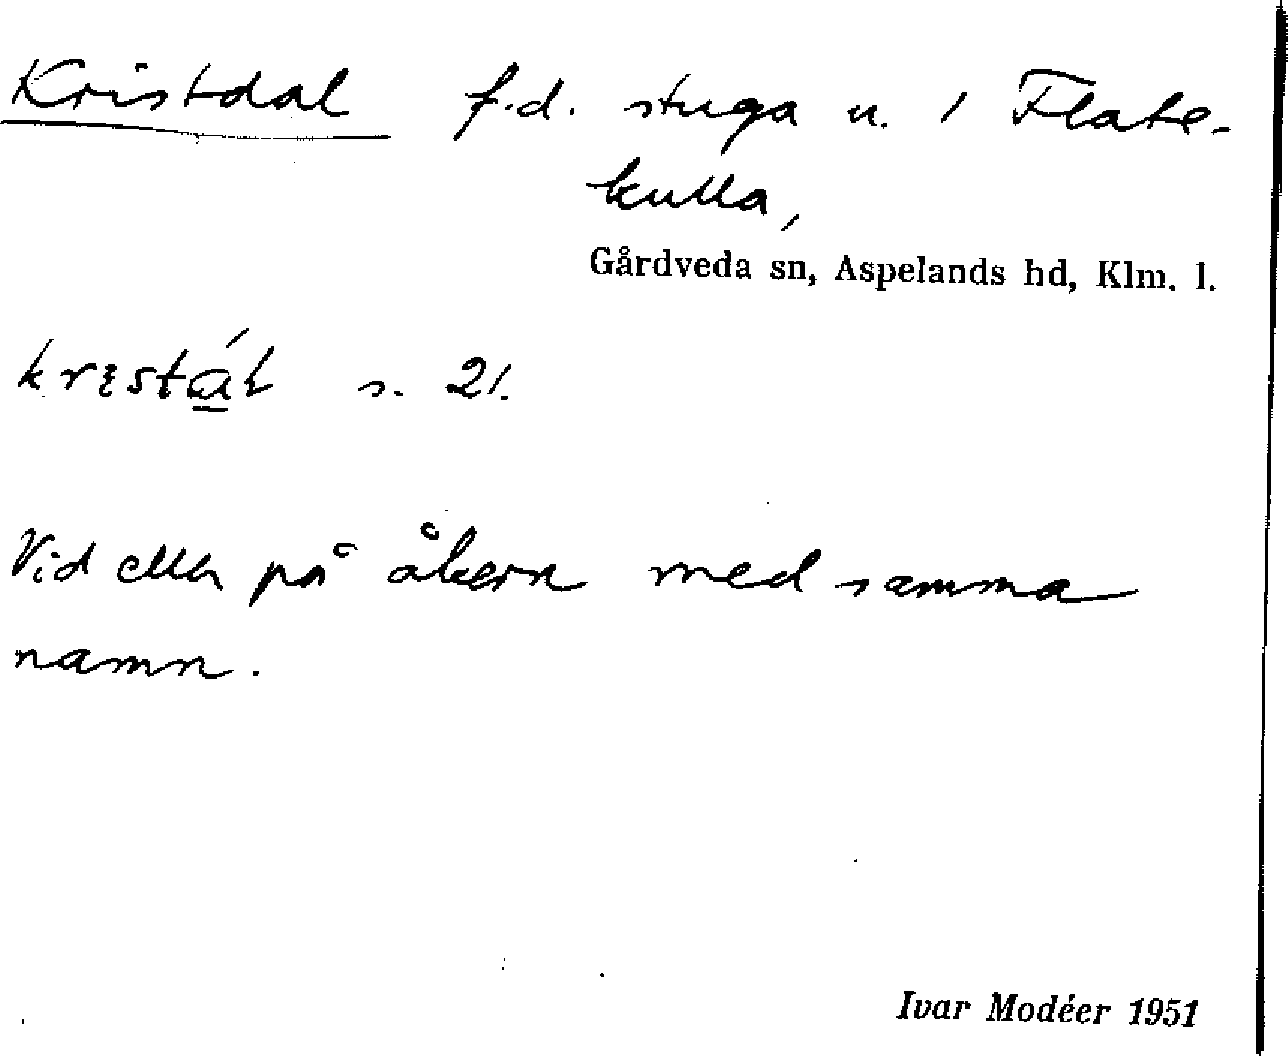 Kristdal f.d. stuga u. 1 Flate-
kulla,
Gårdveda sn, Aspelands hd, Klm. l.
s. 21.
Vid eller på åkern med samma
namn.
Ivar Modéer 1951